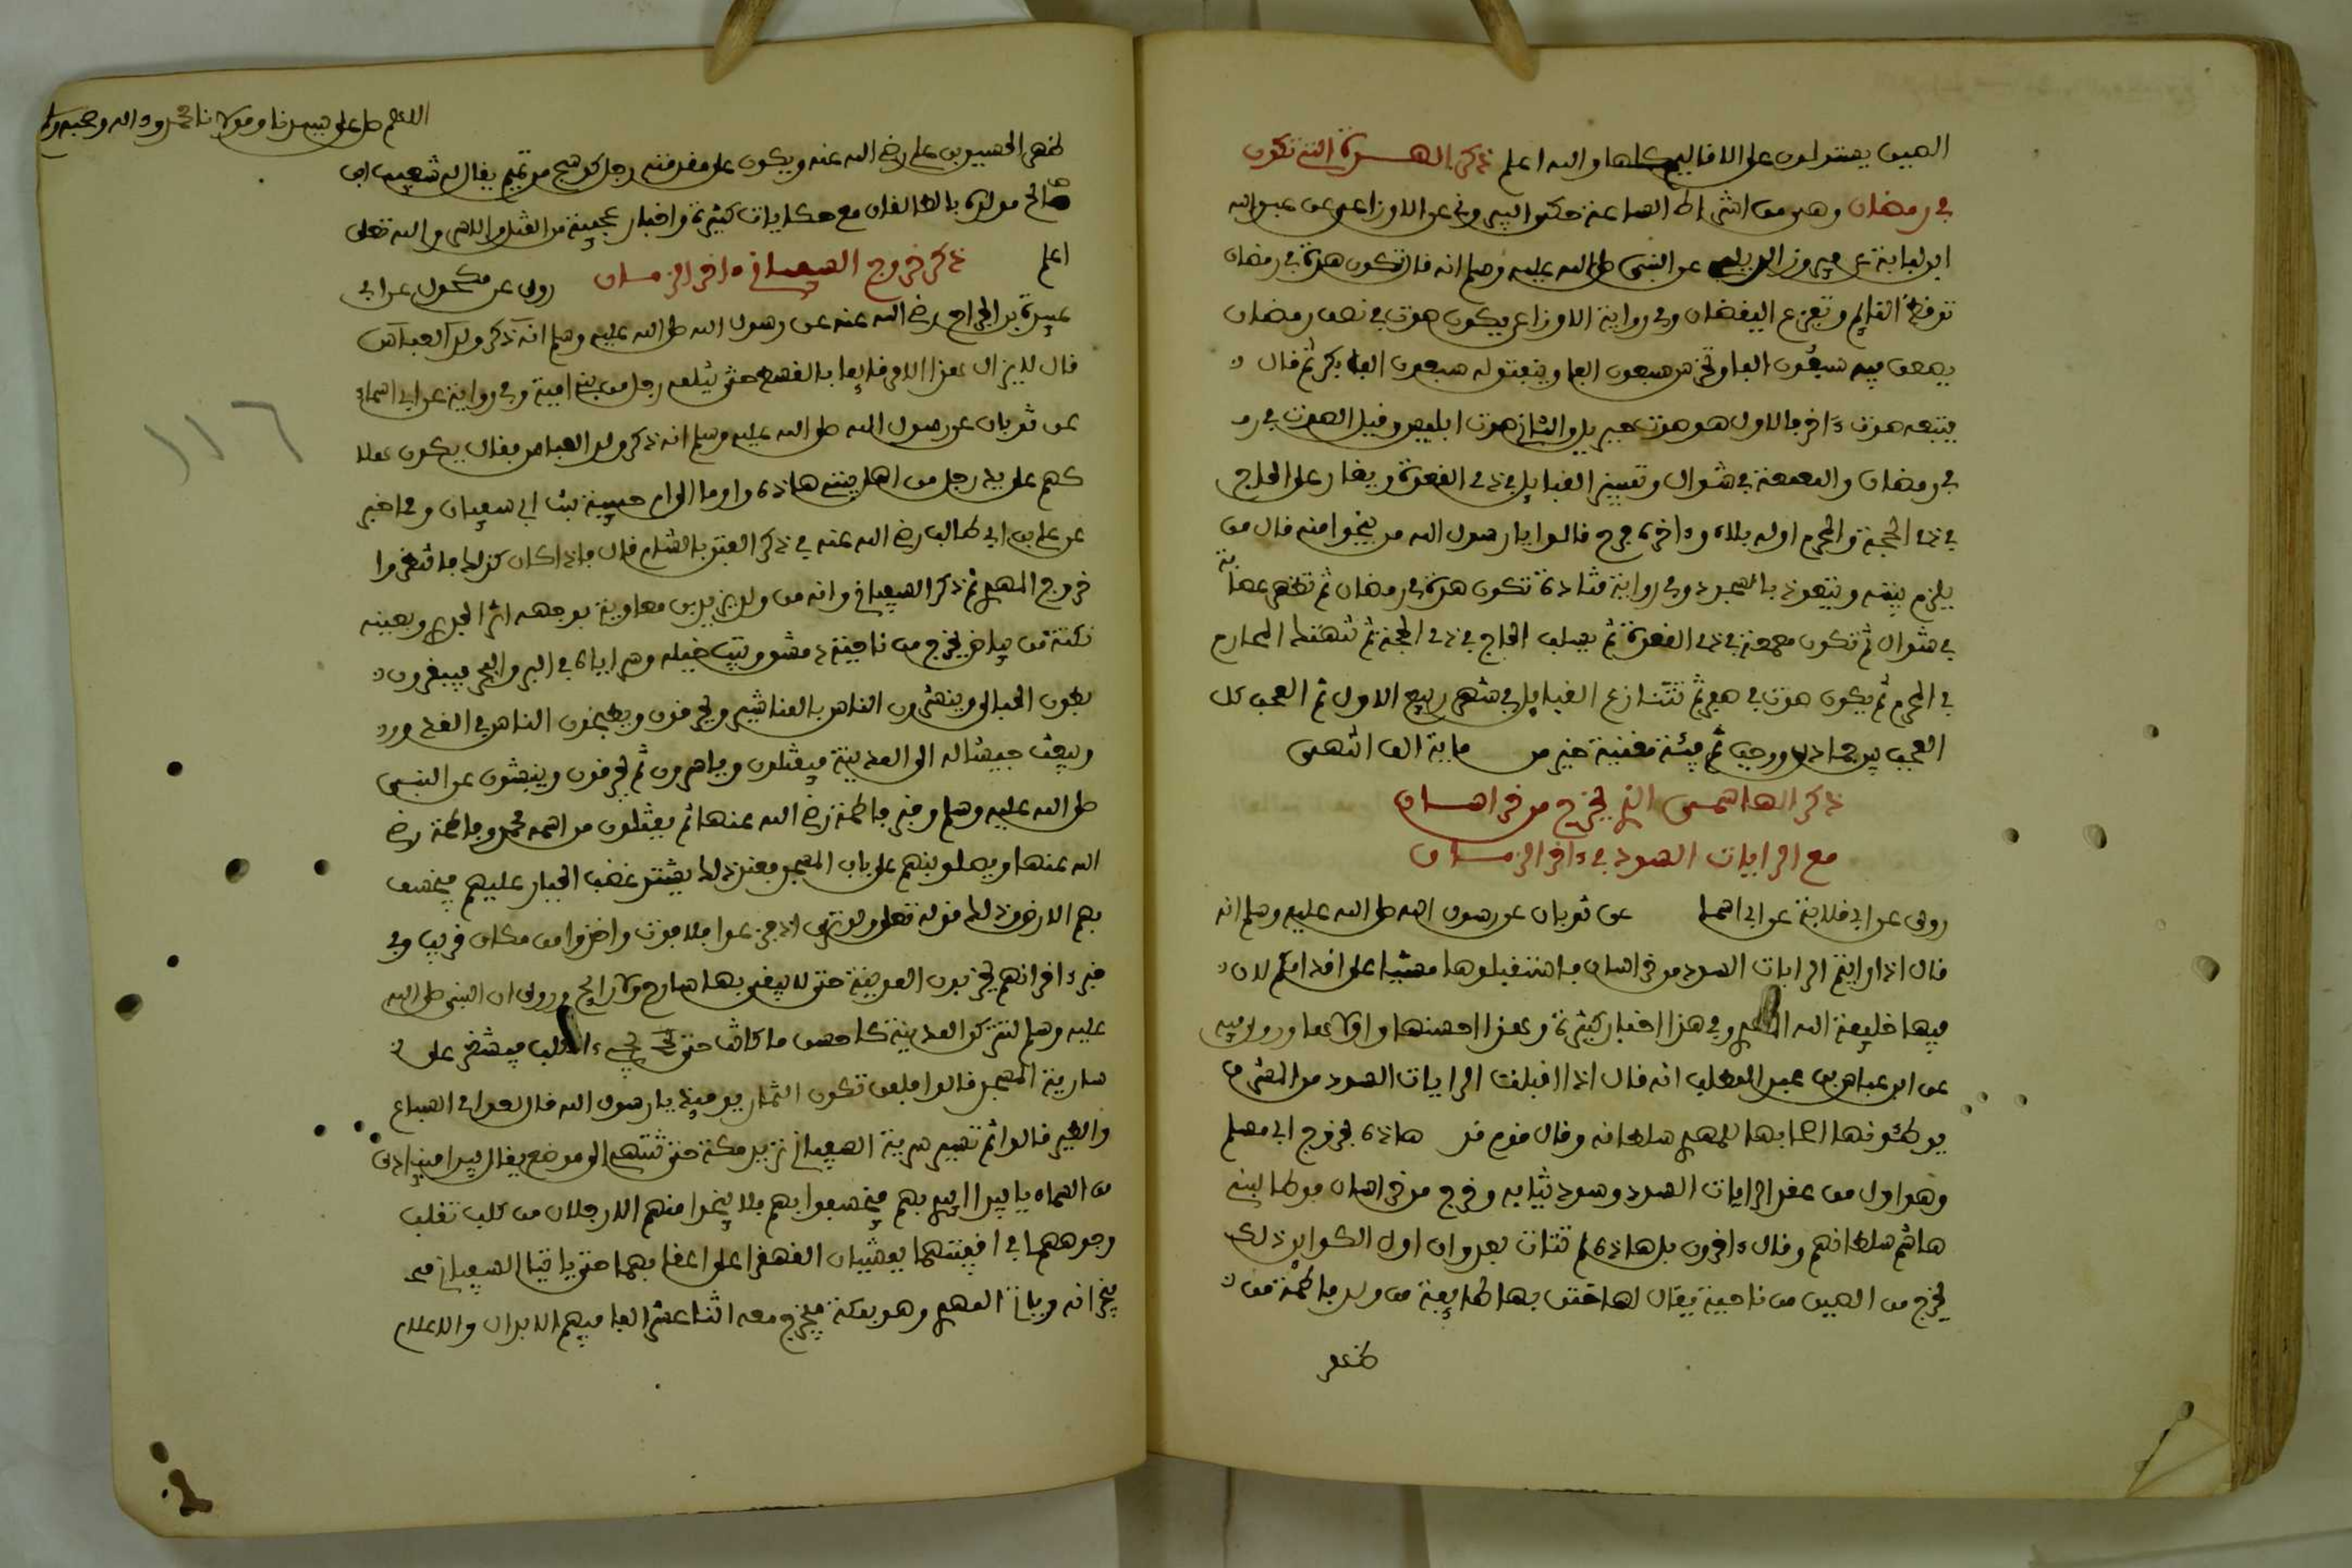 الصين يستولون على الاقاليم كلها والله اعلم ذكر الهدة التي تكون
في رمضان وهي من اشراط الساعة حكى البيروني عن الاوزاعي عن عبد الله
ابن لبابة عن فيروز الديلمي عن النبي صلى الله عليه وسلم انه قال تكون هدة في رمضان
توقظ النايم وتفزع اليقضان وفي رواية الاوزاعي يكون صوت في نصف رمضان
يصعق فيه سبعون الفا وتخرس سبعون الفا وينفتق له سبعون الف بكر ثم قال
يتبعه صوت ءاخر فالاول هو صوت جبريل والثاني صوت ابليس وقيل الصوت في ر
في رمضان والمعمعة في شوال وتمييز القبايل في ذي القعدة ويغار على الحاج
في ذي الحجة والمحرم اوله بلاء وءاخره فرج قالوا يا رسول الله من ينجوا منه قال من
يلزم بيته ويتعوذ بالسجود وفي رواية قتادة تكون هدة في رمضان ثم تظهر عصابة
في شوال ثم تكون معمعة في ذي القعدة ثم يسلب الحاج في ذي الحجة ثم تنهتك المحارم
في المحرم ثم يكون صوت في صفر ثم تتنازع القبايل في شهر ربيع الاول ثم العجب كل
العجب بين جمادى ورجب ثم فيئة مغنية خير من ماية الف انتهى
ذكر الهاشمي الذي يخرج من خراسان
مع الرايات السود في ءاخر الزمان
روى عن ابي قلابة عن ابي اسما عن ثوبان عن رسول الله صلى الله عليه وسلم انه
قال اذا رايتم الرايات السود من خراسان فاستقبلوها مشيا على اقدامكم لان
فيها خليفة الله المهدي وفي هذا اخبار كثيرة وهذا احسنها واولاها وروى فيه
عن ابن عباس بن عبد المطلب انه قال اذا اقبلت الرايات السود من المشرق
يوطئون اصحابها للمهدي سلطانه وقال قوم قد هاذه بخروج ابي مسلم
وهو اول من عقد الرايات السود وسود ثيابه وخرج من خراسان فوطا لبني
هاشم سلطانهم وقال ءاخرون بل هاذه لم تتات بعد وان اول الكواين ذلك
يخرج من الصين من ناحية يقال لها ختن بها طايفة من ولد فاطمة من
ظهر
اللاهم صل على سيدنا ومولانا محمد وءاله وصحبه وسلم
ظهر الحسين بن علي رضي الله عنه ويكون على مقدمته رجل كوسج من تميم يقال له شعيب ابن
صالح مولده بالطالقان مع حكايات كثيرة واخبار عجيبة من القتل والاسر والله تعلى
اعلم ذكر خروج السفياني ءاخر الزمان روى عن مكحول عن ابي
عبيدة بن الجراح رضي الله عنه عن رسول الله صلى الله عليه وسلم انه ذكر ولد العباس
قال لا يزال هذا الامر قايما بالقسط حتى يثلمه رجل من بني امية وفي رواية عن ابي اسماء
عن ثوبان عن رسول الله صلى الله عليه وسلم انه ذكر ولد العباس فقال يكون هلا
كهم على يد رجل من اهل بيت هاذه واوما الى ام حبيبة بنت ابي سفيان وفي خبر
عن علي بن ابي طالب رضي الله عنه في ذكر الفتن بالشام قال فاذا كان كذلك فانتظروا
خروج المهدي ثم ذكر السفياني وانه من ولد يزيد بن معاوية بوجهه اثر الجدري وبعينه
نكتة من بياض يخرج من ناحية دمشق ويبث خيله وسراياه في البر والبحر فيبقرون
بطون الحبالى وينشرون الناس بالمناشير ويحرقون ويطبخون الناس في القدور
ويبعث جيشا له الى المدينة فيقتلون وياسرون ثم يحرقون وينبشون عن النبي
صلى الله عليه وسلم وقبر فاطمة رضي الله عنها ثم يقتلون من اسمه محمد وفاطمة رضي
الله عنها ويصلبونهم على باب المسجد فعند ذلك يشتد غضب الجبار عليهم فيخسف
بهم الارض وذلك قوله تعلى ولو ترى اذ فزعوا فلا فوت واخذوا من مكان قريب وفي
خبر ءاخر انهم يخربون المدينة حتى لا يبقى بها سارح ولا رايح وروى ان النبي صلى الله
عليه وسلم لتتركن المدينة كاحسن ما كانت حتى يجيء الكلب فيشغر على
سارية المسجد قالوا فلمن تكون الثمار يوميذ يا رسول الله قال لعوافي السباع
والطير قالوا ثم تسير سرية السفياني تريد مكة حتى تنتهي الى موضع يقال بيدا فينادى
من السماء يا بيدا ابيدي بهم فيخسفوا بهم فلا ينجوا منهم الا رجلان من كلب تقلب
وجوههما في اقفيتهما يمشيان القهقرا على اعقابهما حتى ياتيا السفياني
فيخبرانه وياتي المهدي وهو بمكة فيخرج معه اثنا عشر الفا فيهم الابدال والاعلام
١١٦